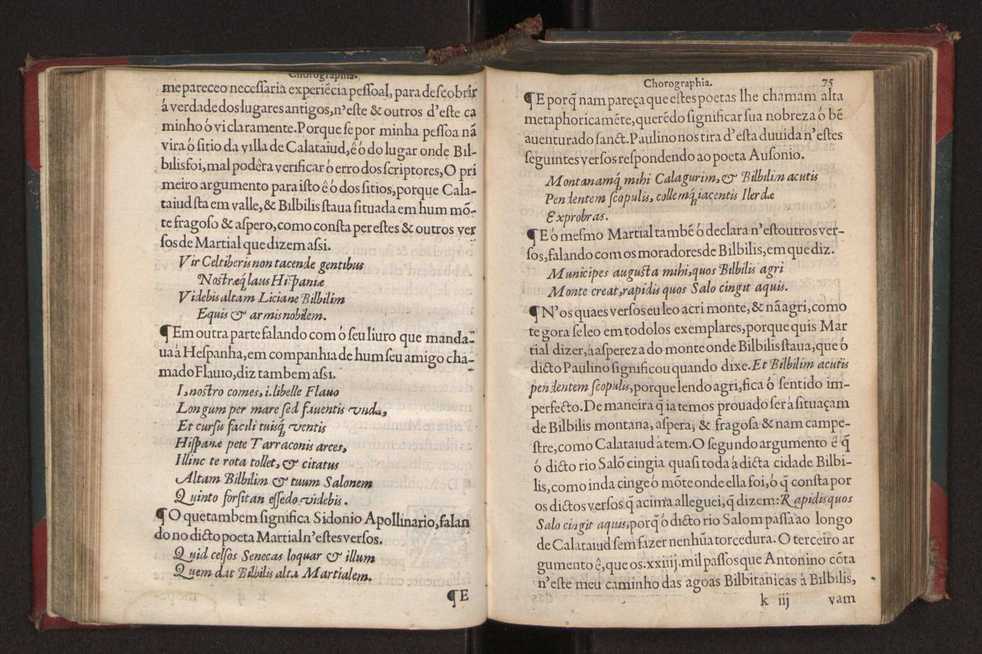 Chorographia.
me pareceo necessaria experiẽcia pessoal, para descobrir
á verdade dos lugares antigos, n'este & outros d'este ca
minho ó vi claramente. Porque se por minha pessoa nã
vira ó sitio da villa de Calataiud, é ó do lugar onde Bil-
bilis foi, mal podèra verificar ó erro dos scriptores, O pri
meiro argumento para isto é ó dos sitios, porque Cala-
taiud sta em valle, & Bilbilis staua situada em hum mõ-
te fragoso & aspero, como consta per estes & outros ver
sos de Martial que dizem assi.
Vir Celtiberis non tacende gentibus
Nostræq̃ laus Hispaniæ
Videbis altam Liciane Bilbilim
Equis & armis nobilem.
¶ Em outra parte falando com ó seu liuro que manda-
ua á Hespanha, em companhia de hum seu amigo cha-
mado Flauio, diz tambem assi.
I, nostro comes, i, libelle Flauo
Longum per mare sed fauentis vndæ,
Et cursu facili tuisq̃ ventis
Hispanæ pete Tarraconis arces,
Illinc te rota tollet, & citatus
Altam Bilbilim & tuum Salonem
Quinto forsitan essedo videbis.
¶ O que tambem significa Sidonio Apollinario, falan
do no dicto poeta Martial n'estes versos.
Quid celsos Senecas loquar & illum
Quem dat Bilbilis alta Martialem.
¶ E
Chorographia. 75
¶ E porq̃ nam pareça que estes poetas lhe chamam alta
metaphoricamẽte, querẽdo significar sua nobreza ó bẽ
auenturado sanct. Paulino nos tira d'esta duuida n'estes
seguintes versos respondendo ao poeta Ausonio.
Montanamq̃ mihi Calagurim, & Bilbilim acutis
Pendentem scopulis, collemq̃ iacentis Ilerdæ
Exprobras.
¶ E ó mesmo Martial tambẽ ó declara n'estoutros ver-
sos, falando com os moradores de Bilbilis, em que diz.
Municipes augusta mihi, quos Bilbilis agri
Monte creat, rapidis quos Salo cingit aquis.
¶ N'os quaes versos eu leo acri monte, & nã agri, como
te gora se leo em todolos exemplares, porque quis Mar
tial dizer, à aspereza do monte onde Bilbilis staua, que ó
dicto Paulino significou quando dixe. Et Bilbilim acutis
pendentem scopulis, porque lendo agri, fica ó sentido im-
perfecto. De maneira q̃ ia temos prouado ser à situaçam
de Bilbilis montana, aspera, & fragosa & nam campe-
stre, como Calataiud à tem. O segundo argumento é q̃
ó dicto rio Salõ cingia quasi toda à dicta cidade Bilbi-
lis, como inda cinge ó mõte onde ella foi, ó q̃ consta por
os dictos versos q̃ acima alleguei, q̃ dizem: Rapidis quos
Salo cingit aquis, porq̃ ó dicto rio Salom passa ao longo
de Calataiud sem fazer nenhũa torcedura. O terceiro ar
gumento é, que os. xxiiij. mil passos que Antonino cõta
n'este meu caminho das agoas Bilbitanicas à Bilbilis,
k iij vam